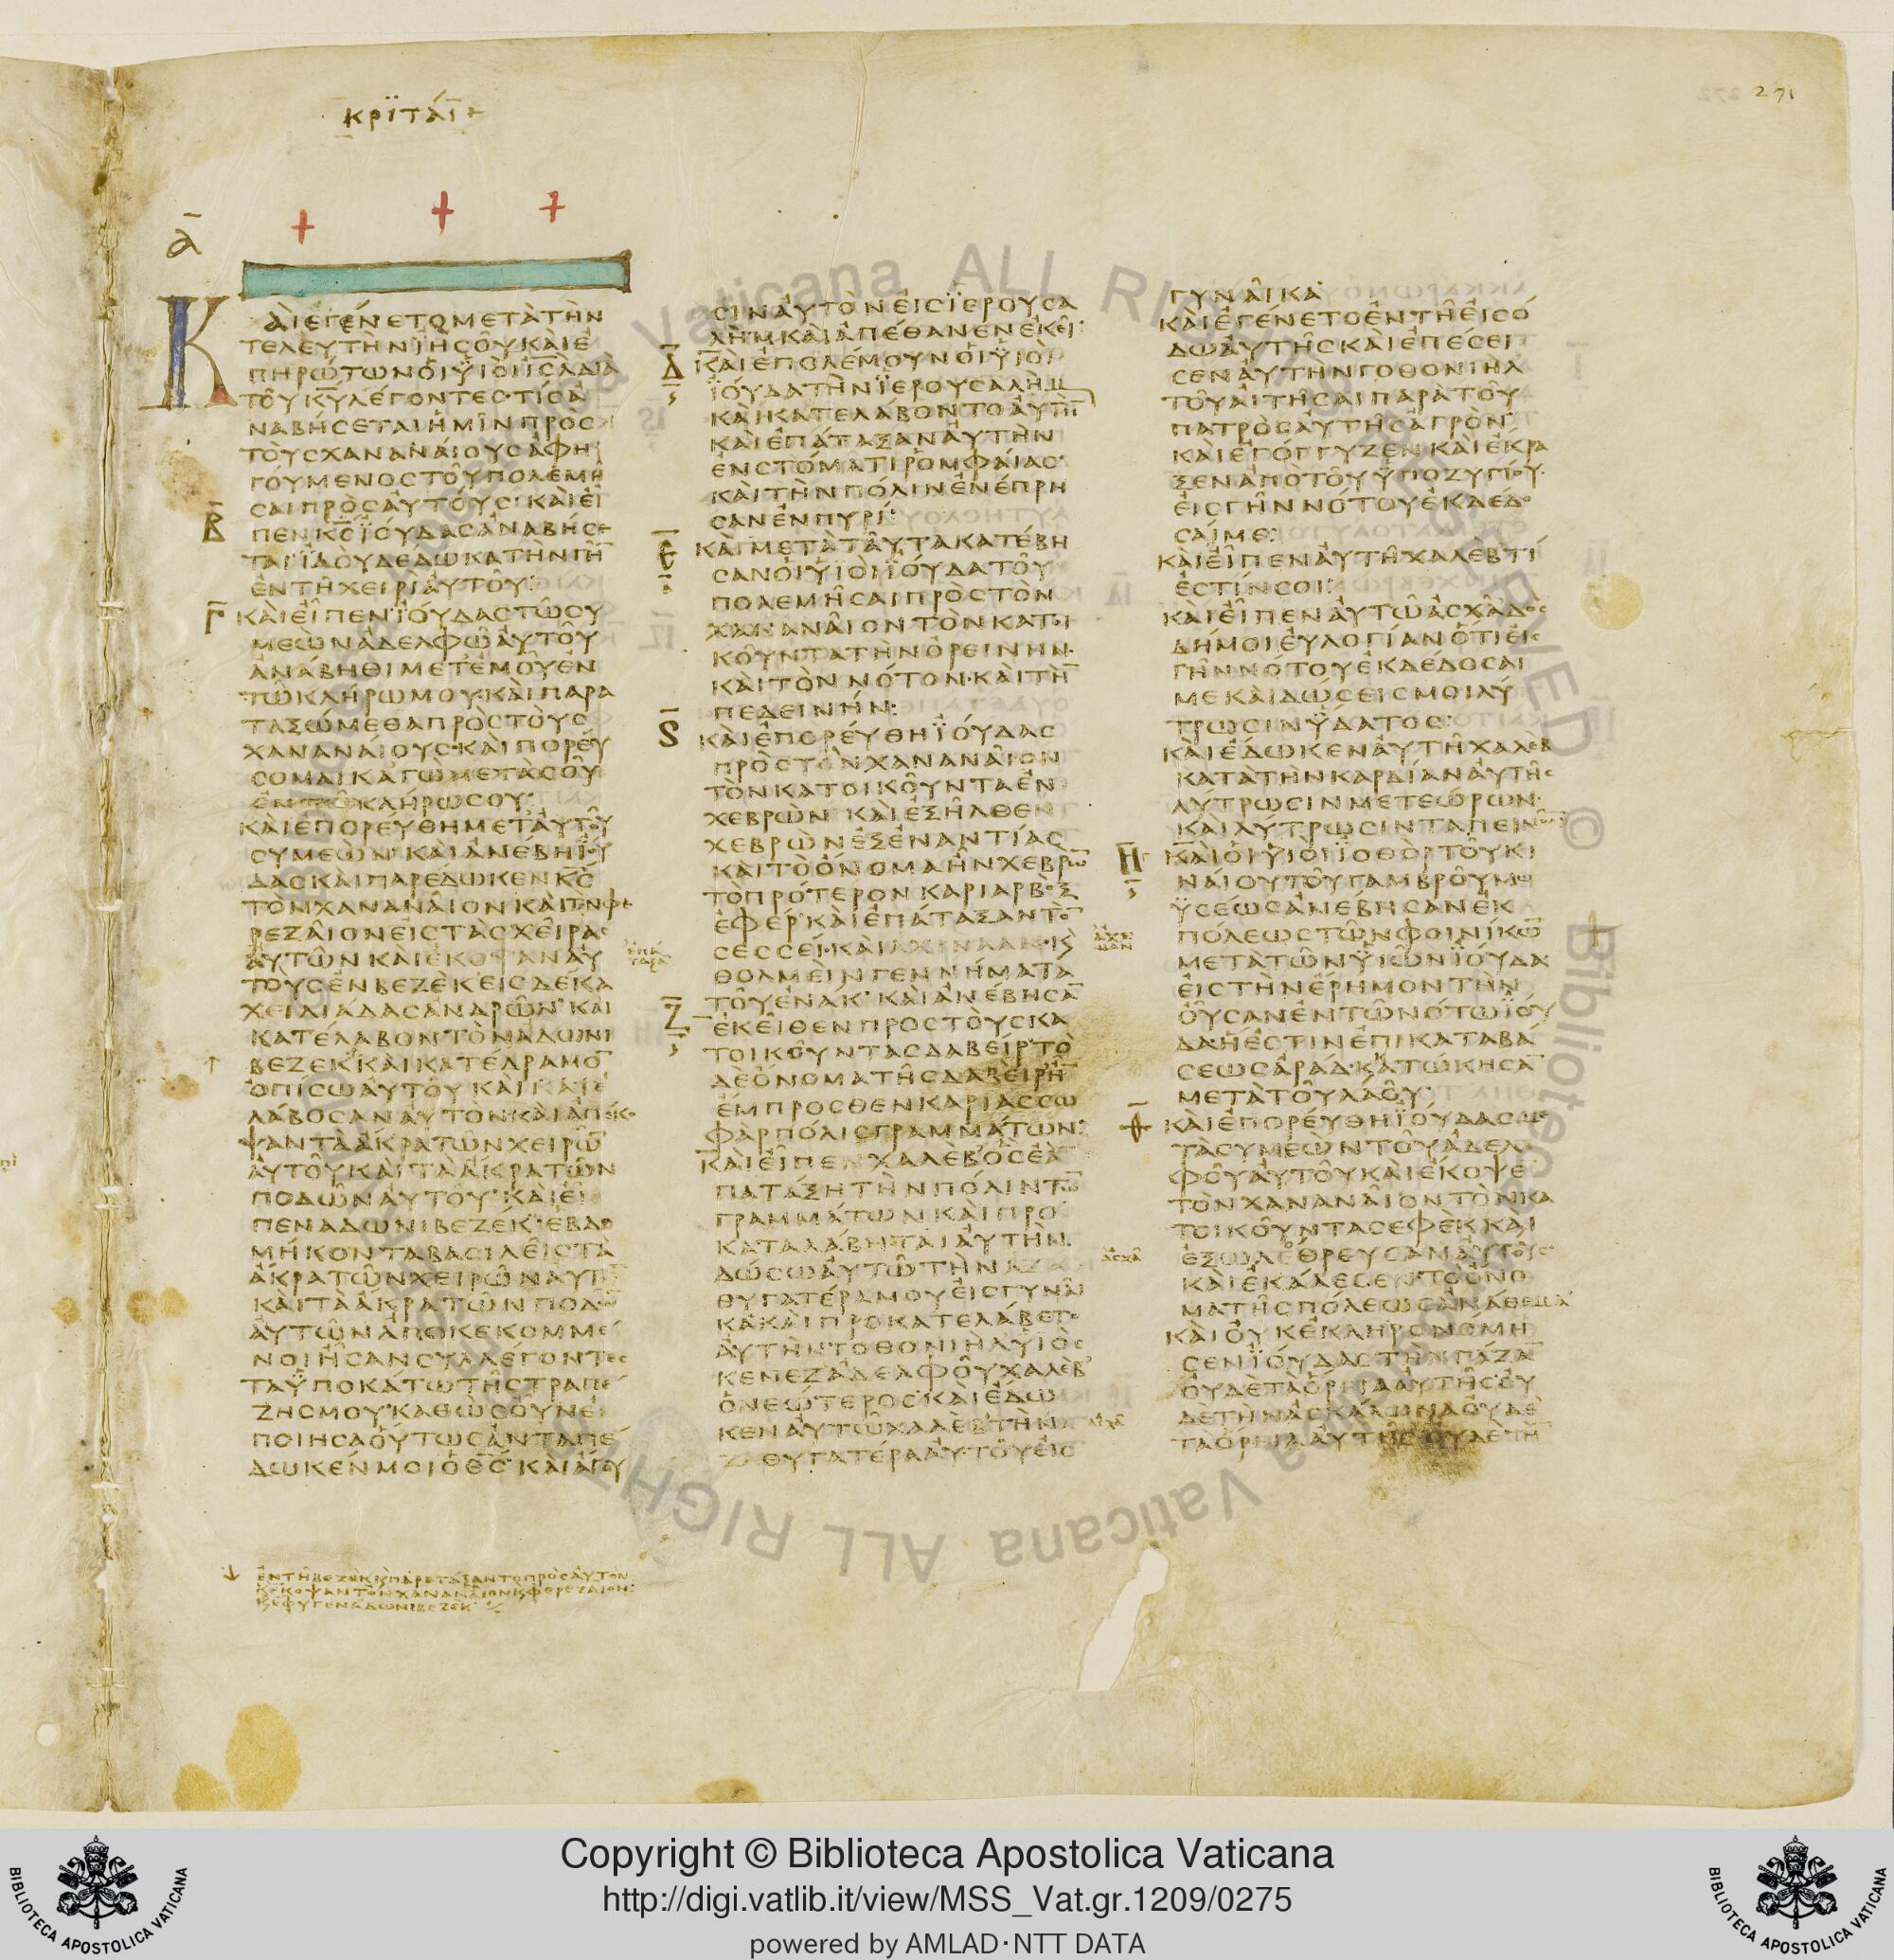 ΚΡΪΤΑΙ
271
Α
ΚΑΙΕΓΕΝΕΤΟΜΕΤΑΤΗΝ
ΤΕΛΕΥΤΗΝΙΗϹΟΥΚΑΙΕ
ΠΗΡΩΤΩΝΟΙΥΙΟΙΙϹΛΔΙΑ
ΤΟΥΚΥΛΕΓΟΝΤΕϹΤΙϹΑ
ΝΑΒΗϹΕΤΑΙΗΜΙΝΠΡΟϹ
ΤΟΥϹΧΑΝΑΝΑΙΟΥϹΑΦΗ
ΓΟΥΜΕΝΟϹΤΟΥΠΟΛΕΜΗ
ϹΑΙΠΡΟϹΑΥΤΟΥϹΚΑΙΕΙ
Β ΠΕΝΚϹΪΟΥΔΑϹΑΝΑΒΗϹΕ
ΤΑΙΪΔΟΥΔΕΔΩΚΑΤΗΝΓΗ
ΕΝΤΗΧΕΙΡΙΑΥΤΟΥ
Γ ΚΑΙΕΙΠΕΝΪΟΥΔΑϹΤΩϹΥ
ΜΕΩΝΑΔΕΛΦΩΑΥΤΟΥ
ΑΝΑΒΗΘΙΜΕΤΕΜΟΥΕΝ
ΤΩΚΛΗΡΩΜΟΥΚΑΙΠΑΡΑ
ΤΑΞΩΜΕΘΑΠΡΟϹΤΟΥϹ
ΧΑΝΑΝΑΙΟΥϹΚΑΙΠΟΡΕΥ
ϹΟΜΑΙΚΑΓΩΜΕΤΑϹΟΥ
ΕΝΤΩΚΛΗΡΩϹΟΥ
ΚΑΙΕΠΟΡΕΥΘΗΜΕΤΑΥΤΟΥ
ϹΥΜΕΩΝΚΑΙΑΝΕΒΗΪΟΥ
ΔΑϹΚΑΙΠΑΡΕΔΩΚΕΝΚϹ
ΤΟΝΧΑΝΑΝΑΙΟΝΚΑΙΤΟΝΦΕ
ΡΕΖΑΙΟΝΕΙϹΤΑϹΧΕΙΡΑϹ
ΑΥΤΩΝΚΑΙΕΚΟΨΑΝΑΥ
ΤΟΥϹΕΝΒΕΖΕΚΕΙϹΔΕΚΑ
ΧΕΙΛΙΑΔΑϹΑΝΔΡΩΝΚΑΙ
ΚΑΤΕΛΑΒΟΝΤΟΝΑΔΩΝΙ
ΒΕΖΕΚΚΑΙΚΑΤΕΔΡΑΜΟ
ΟΠΙϹΩΑΥΤΟΥΚΑΙΚΑΤΕ
ΛΑΒΟϹΑΝΑΥΤΟΝΚΑΙΑΠΕΚΟ
ΨΑΝΤΑΑΚΡΑΤΩΝΧΕΙΡΩ
ΑΥΤΟΥΚΑΙΤΑΑΚΡΑΤΩΝ
ΠΟΔΩΝΑΥΤΟΥΚΑΙΕΙ
ΠΕΝΑΔΩΝΙΒΕΖΕΚΕΒΔΟ
ΜΗΚΟΝΤΑΒΑϹΙΛΕΙϹΤΑ
ΑΚΡΑΤΩΝΧΕΙΡΩΝΑΥΤΩ
ΚΑΙΤΑΑΚΡΑΤΩΝΠΟΔΩ
ΑΥΤΩΝΑΠΟΚΕΚΟΜΜΕ
ΝΟΙΗϹΑΝϹΥΛΛΕΓΟΝΤΕϹ
ΤΑΫΠΟΚΑΤΩΤΗϹΤΡΑΠΕ
ΖΗϹΜΟΥΚΑΘΩϹΟΥΝΕ
ΠΟΙΗϹΑΟΥΤΩϹΑΝΤΑΠΕ
ΔΩΚΕΝΜΟΙΟΘϹΚΑΙΑΓΟΥ
ΕΝΤΗΒΕΖΕΚΚΠΑΡΕΤΑΞΑΝΤΟΠΡΟϹΑΥΤΟΝ
ΚΕΚΟΨΑΝΤΟΝΧΑΝΑΝΑΙΟΝΚΦΕΡΕΖΑΙΟΝ
ΚΕΦΥΓΕΝΑΔΩΝΙΒΕΖΕΚ
ϹΙΝΑΥΤΟΝΕΙϹΪΕΡΟΥϹΑ
ΛΗΜΚΑΙΑΠΕΘΑΝΕΝΕΚΕΙ
Δ ΚΑΙΕΠΟΛΕΜΟΥΝΟΙΫΙΟΙ
ΪΟΥΔΑΤΗΝΪΕΡΟΥϹΑΛΗΜ
ΚΑΙΚΑΤΕΛΑΒΟΝΤΟΑΥΤΗ
ΚΑΙΕΠΑΤΑΞΑΝΑΥΤΗΝ
ΕΝϹΤΟΜΑΤΙΡΟΜΦΑΙΑϹ
ΚΑΙΤΗΝΠΟΛΙΝΕΝΕΠΡΗ
ϹΑΝΕΝΠΥΡΙ
Ε ΚΑΙΜΕΤΑΤΑΥΤΑΚΑΤΕΒΗ
ϹΑΝΟΙΫΙΟΙΪΟΥΔΑΤΟΥ
ΠΟΛΕΜΗϹΑΙΠΡΟϹΤΟΝ
ΧΑΝΑΝΑΙΟΝΤΟΝΚΑΤΟΙ
ΚΟΥΝΤΑΤΗΝΟΡΕΙΝΗΝ
ΚΑΙΤΟΝΝΟΤΟΝΚΑΙΤΗ
ΠΕΔΕΙΝΗΝ
Ϛ ΚΑΙΕΠΟΡΕΥΘΗΪΟΥΔΑϹ
ΠΡΟϹΤΟΝΧΑΝΑΝΑΙΟΝ
ΤΟΝΚΑΤΟΙΚΟΥΝΤΑΕΝ
ΧΕΒΡΩΝΚΑΙΕΞΗΛΘΕΝ
ΧΕΒΡΩΝΕΞΕΝΑΝΤΙΑϹ
ΚΑΙΤΟΟΝΟΜΑΗΝΧΕΒΡΩ
ΤΟΠΡΟΤΕΡΟΝΚΑΡΙΑΡΒΟΞ
ΕΦΕΡΚΑΙΕΠΑΤΑΞΑΝΤΟ
ϹΕϹϹΕΙΚΑΙΑΧΙΝΑΑΝΚ
ΘΟΛΜΕΙΝΓΕΝΝΗΜΑΤΑ
ΤΟΥΕΝΑΚΚΑΙΑΝΕΒΗϹΑ
Ζ ΕΚΕΙΘΕΝΠΡΟϹΤΟΥϹΚΑ
ΤΟΙΚΟΥΝΤΑϹΔΑΒΕΙΡΤΟ
ΔΕΟΝΟΜΑΤΗϹΔΑΒΕΙΡΗ
ΕΜΠΡΟϹΘΕΝΚΑΡΙΑϹϹΩ
ΦΑΡΠΟΛΙϹΓΡΑΜΜΑΤΩΝ
ΚΑΙΕΙΠΕΝΧΑΛΕΒΟϹΕΑ
ΠΑΤΑΞΗΤΗΝΠΟΛΙΝΤΩ
ΓΡΑΜΜΑΤΩΝΚΑΙΠΡΟ
ΚΑΤΑΛΑΒΗΤΑΙΑΥΤΗΝ
ΔΩϹΩΑΥΤΩΤΗΝΑΖΑ
ΘΥΓΑΤΕΡΑΜΟΥΕΙϹΓΥΝΑΙ
ΚΑΚΑΙΠΡΟΚΑΤΕΛΑΒΕΤΟ
ΑΥΤΗΝΓΟΘΟΝΙΗΛΥΙΟϹ
ΚΕΝΕΖΑΔΕΛΦΟΥΧΑΛΕΒ
ΟΝΕΩΤΕΡΟϹΚΑΙΕΔΩ
ΚΕΝΑΥΤΩΧΑΛΕΒΤΗΝΑ
ΖΑΘΥΓΑΤΕΡΑΑΥΤΟΥΕΙϹ
ΓΥΝΑΙΚΑ
ΚΑΙΕΓΕΝΕΤΟΕΝΤΗΕΙϹΟ
ΔΩΑΥΤΗϹΚΑΙΕΠΕϹΕΙ
ϹΕΝΑΥΤΗΝΓΟΘΟΝΙΗΛ
ΤΟΥΑΙΤΗϹΑΙΠΑΡΑΤΟΥ
ΠΑΤΡΟϹΑΥΤΗϹΑΓΡΟΝ
ΚΑΙΕΓΟΓΓΥΖΕΝΚΑΙΕΚΡΑ
ΞΕΝΑΠΟΤΟΥΫΠΟΖΥΓΙΟΥ
ΕΙϹΓΗΝΝΟΤΟΥΕΚΔΕΔΟ
ϹΑΙΜΕ
ΚΑΙΕΙΠΕΝΑΥΤΗΧΑΛΕΒΤΙ
ΕϹΤΙΝϹΟΙ
ΚΑΙΕΙΠΕΝΑΥΤΩΑϹΧΑΔΟϹ
ΔΗΜΟΙΕΥΛΟΓΙΑΝΟΤΙΕΙϹ
ΓΗΝΝΟΤΟΥΕΚΔΕΔΟϹΑΙ
ΜΕΚΑΙΔΩϹΕΙϹΜΟΙΛΥ
ΤΡΩϹΙΝΫΔΑΤΟϹ
ΚΑΙΕΔΩΚΕΝΑΥΤΗΧΑΛΕΒ
ΚΑΤΑΤΗΝΚΑΡΔΙΑΝΑΥΤΗϹ
ΛΥΤΡΩϹΙΝΜΕΤΕΩΡΩΝ
ΚΑΙΛΥΤΡΩϹΙΝΤΑΠΕΙΝΩ
Η ΚΑΙΟΙΫΙΟΙΪΟΘΟΡΤΟΥΚΙ
ΝΑΙΟΥΤΟΥΓΑΜΒΡΟΥΜΩ
ΫϹΕΩϹΑΝΕΒΗϹΑΝΕΚ
ΠΟΛΕΩϹΤΩΝΦΟΙΝΙΚΩ
ΜΕΤΑΤΩΝΫΙΩΝΪΟΥΔΑ
ΕΙϹΤΗΝΕΡΗΜΟΝΤΗΝ
ΟΥϹΑΝΕΝΤΩΝΟΤΩΪΟΥ
ΔΑΗΕϹΤΙΝΕΠΙΚΑΤΑΒΑ
ϹΕΩϹΑΡΑΔΚΑΤΩΚΗϹΑ
ΜΕΤΑΤΟΥΛΑΟΥ
Θ ΚΑΙΕΠΟΡΕΥΘΗΪΟΥΔΑϹΜΕ
ΤΑϹΥΜΕΩΝΤΟΥΑΔΕΛ
ΦΟΥΑΥΤΟΥΚΑΙΕΚΟΨΕ
ΤΟΝΧΑΝΑΝΑΙΟΝΤΟΝΚΑ
ΤΟΙΚΟΥΝΤΑϹΕΦΕΚΚΑΙ
ΕΞΩΛΕΘΡΕΥϹΑΝΑΥΤΟΥϹ
ΚΑΙΕΚΑΛΕϹΕΝΤΟΟΝΟ
ΜΑΤΗϹΠΟΛΕΩϹΑΝΑΘΕΜΑ
ΚΑΙΟΥΚΕΚΛΗΡΟΝΟΜΗ
ϹΕΝΪΟΥΔΑϹΤΗΝΓΑΖΑ
ΟΥΔΕΤΑΟΡΙΑΑΥΤΗϹΟΥ
ΔΕΤΗΝΑϹΚΑΛΩΝΑΟΥΔΕ
ΤΑΟΡΙΑΑΥΤΗϹΟΥΔΕΤΗ
Copyright © Biblioteca Apostolica Vaticana
http://digi.vatlib.it/view/MSS_Vat.gr.1209/0275
powered by AMLAD·NTT DATA
BIBLIOTECA APOSTOLICA VATICANA
BIBLIOTECA APOSTOLICA VATICANA